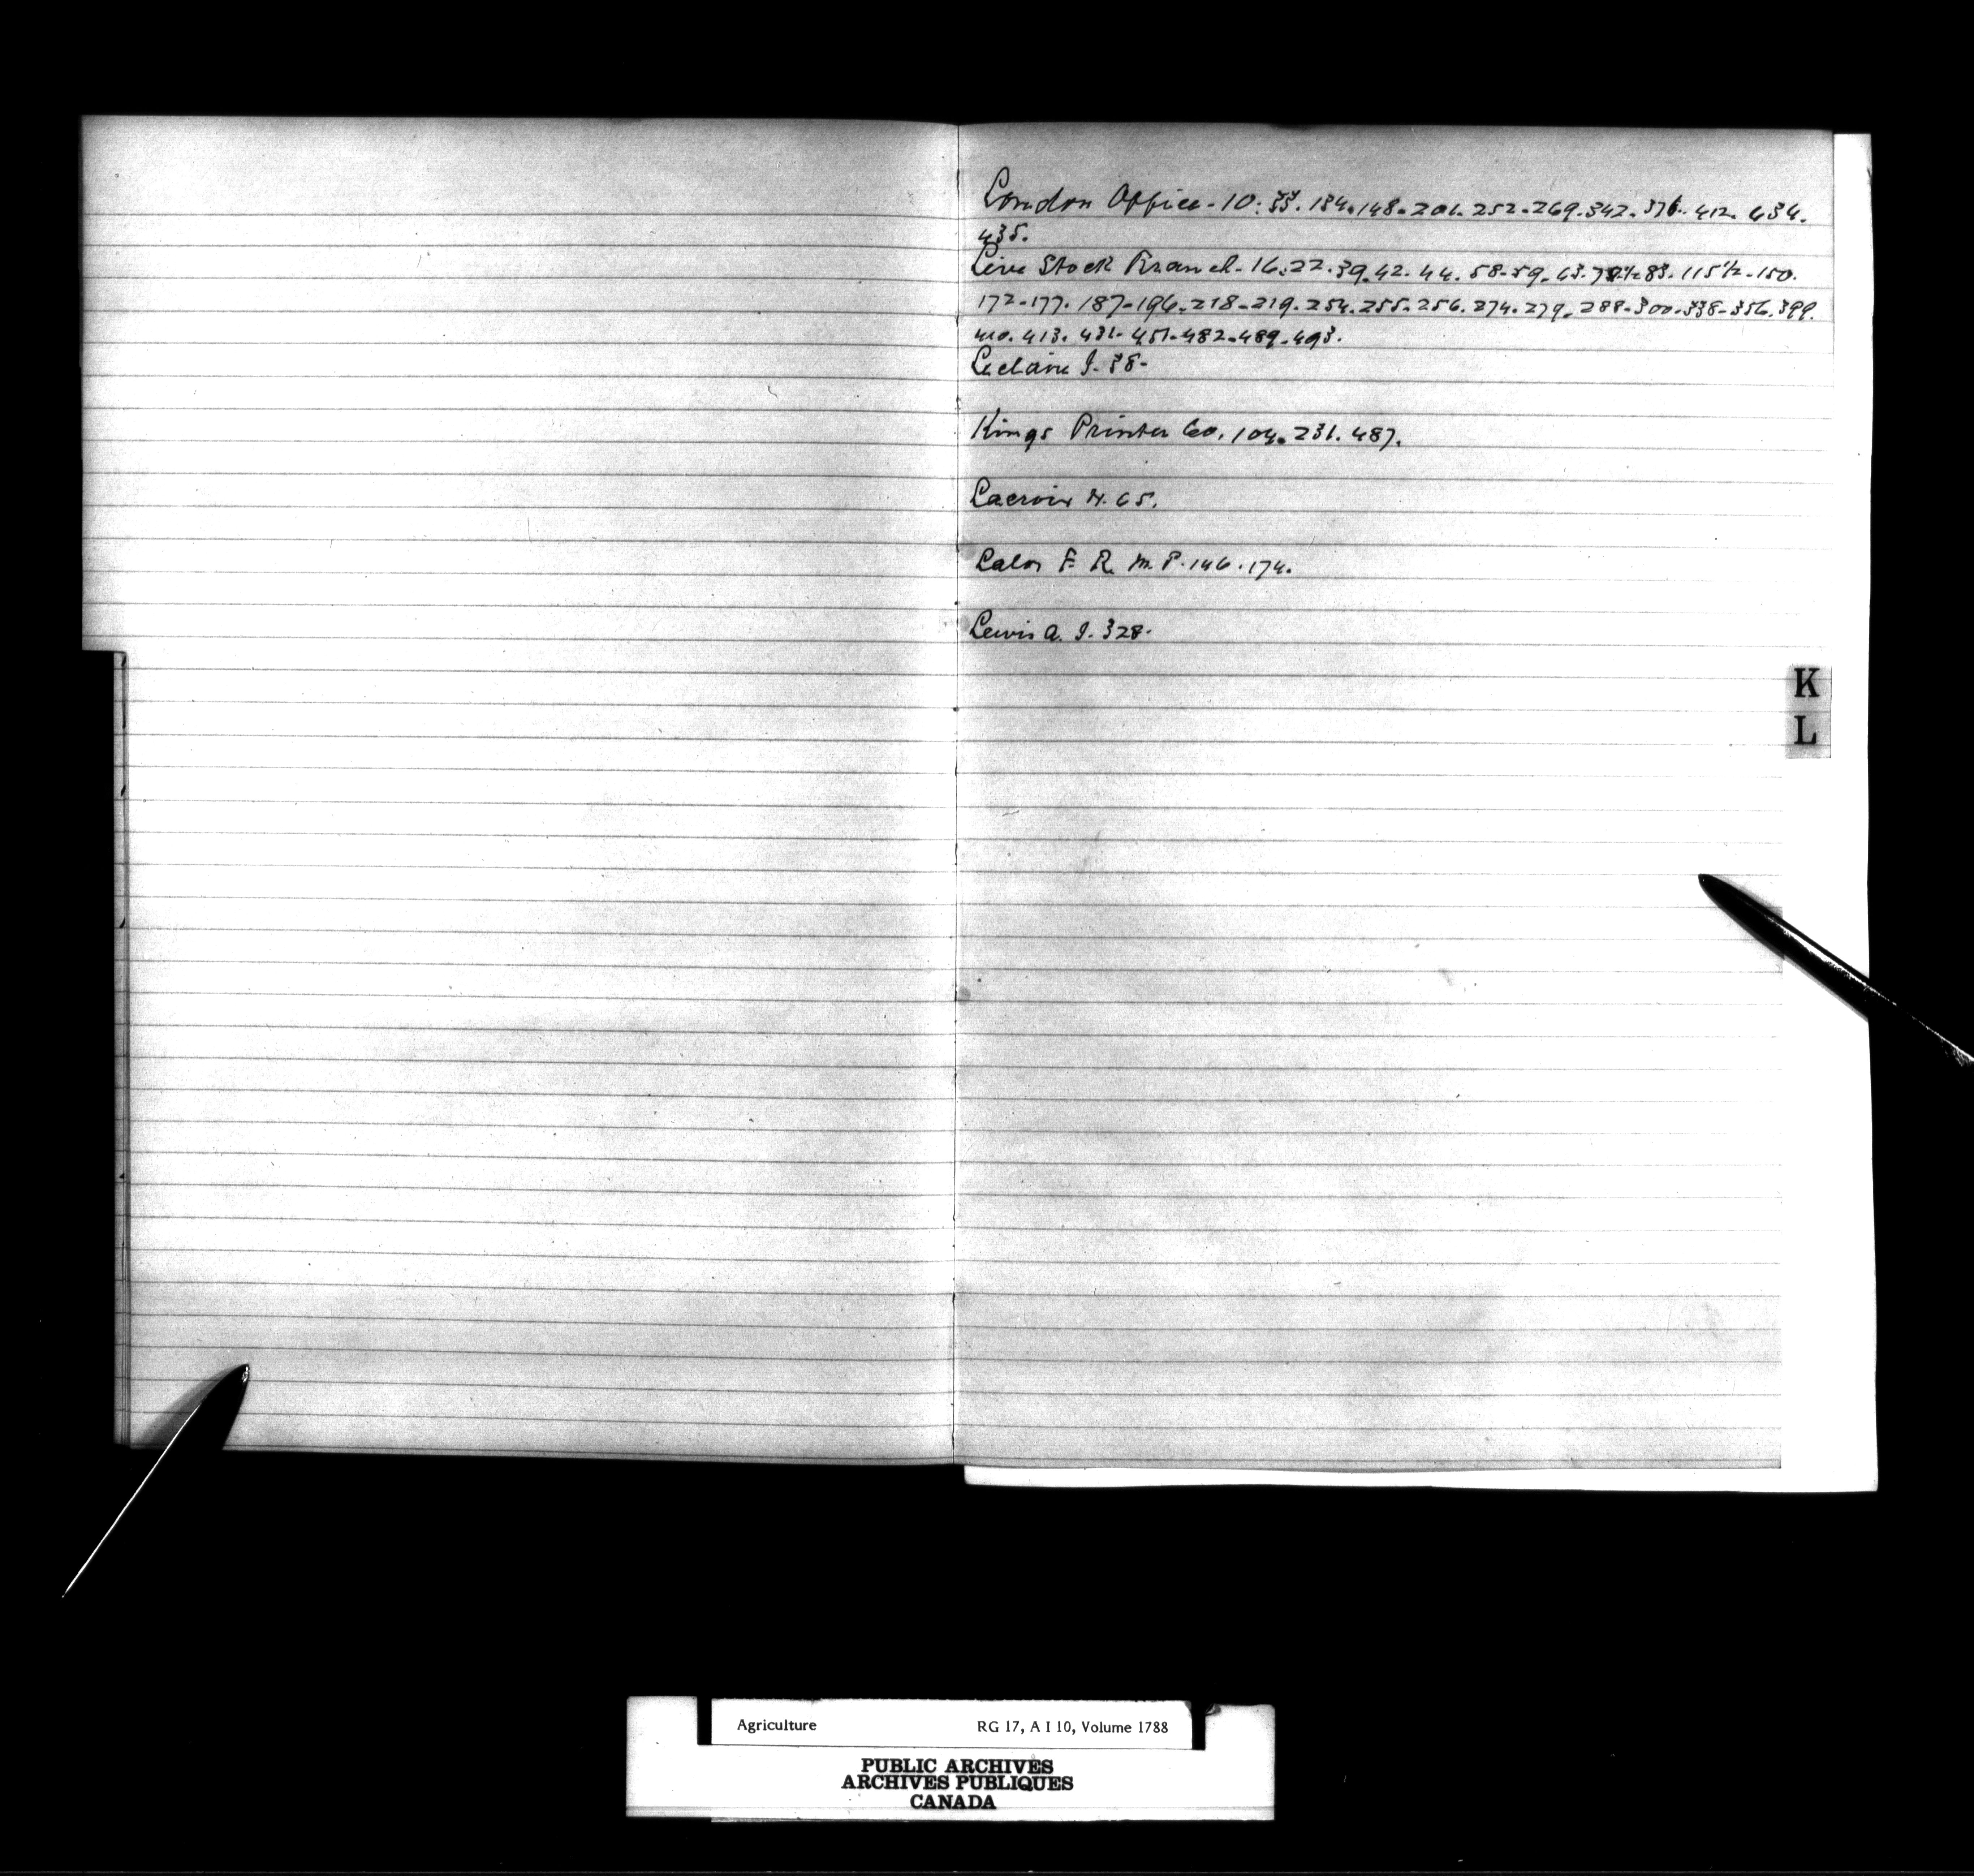 London Office - 10. 33. 134. 148. 201. 252. 269. 342. 376. 412. 434.
435.
Live Stock Branch - 16. 22. 39. 42. 44. 58. 59. 63. 83. 115½ - 150.
172 - 177. 187 - 196. 218 - 219. 254. 255. 256. 274. 279. 288 - 300. 338 - 356. 399.
410. 413. 431. 451. 482. 489. 493.
Leclaire J. 38 -
Kings Printer Co. 104. 231. 487.
Lacroix N. 65.
Lalor F. R. M. P. 146. 174.
Lewis A. J. 328.
K
L
Agriculture RG 17, A I 10, Volume 1788
PUBLIC ARCHIVES
ARCHIVES PUBLIQUES
CANADA